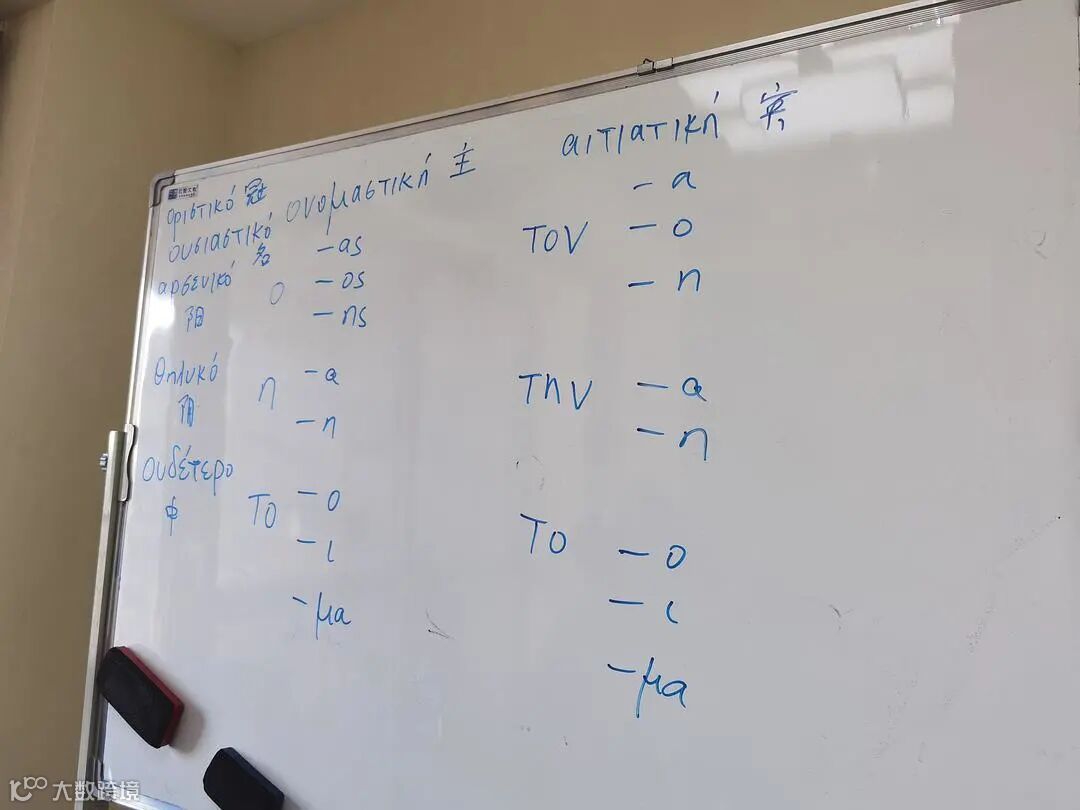 οριστικό 冠
ουσιαστικό ονομαστική 主
名
αρσενικό ο -ας
阳 -ος
-ης
θηλυκό η -α
阴 -η
ουδέτερο το -ο
中 -ι
-μα
αιτιατική 宾
-α
τον -ο
-η
την -α
-η
το -ο
-ι
-μα
大数跨境